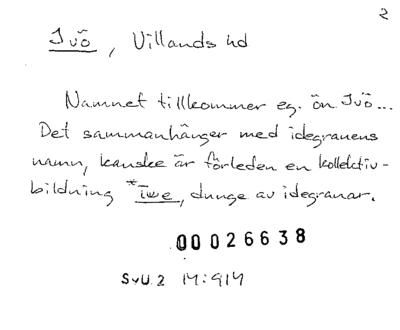 2
Ivö, Villands hd
Namnet tillkommer eg. ön Ivö...
Det sammanhänger med idegranens
namn, kanske är förleden en kollektiv-
bildning *īwe, dunge av idegranar.
00026638
SvU 2 14:914